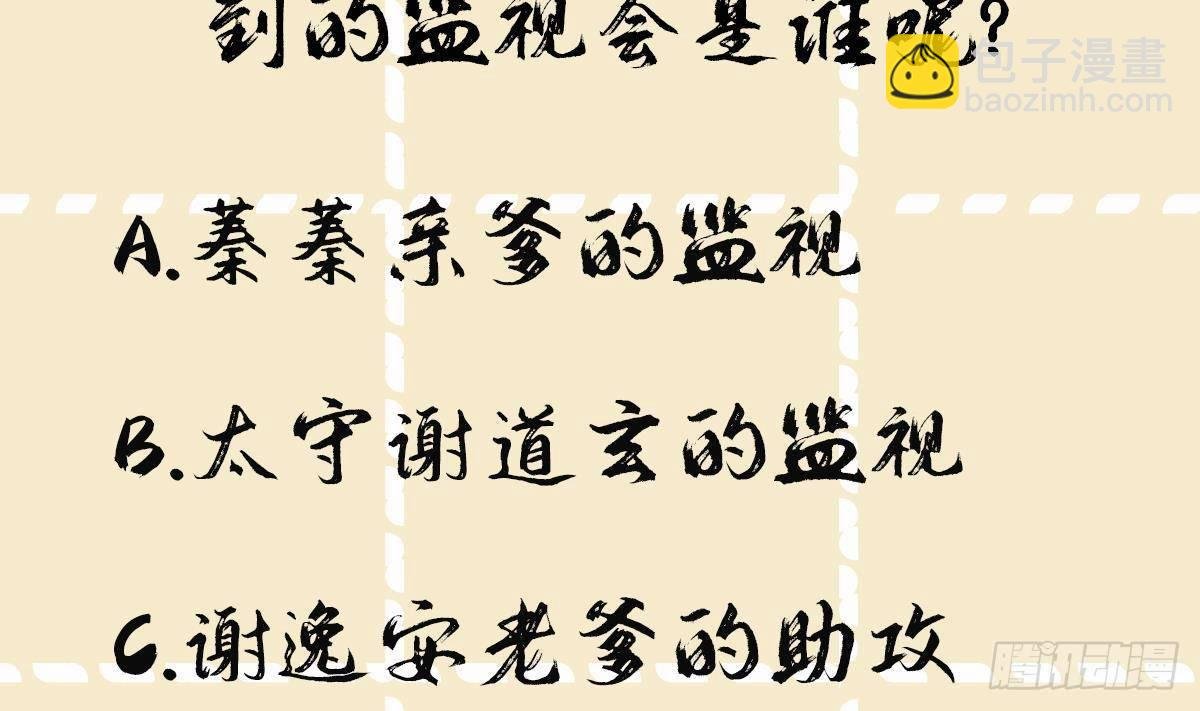 到的监视会是谁呢？
包子漫畫
baozimh.com
A.蓁蓁亲爹的监视
B.太守谢道玄的监视
C.谢逸安老爹的助攻
腾讯动漫